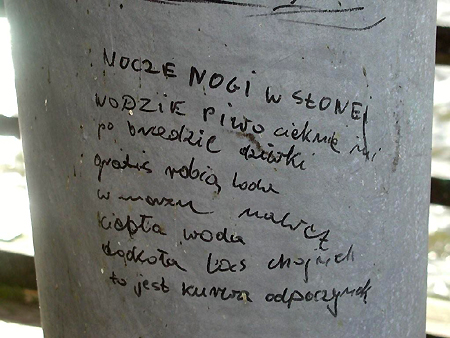 MOCZE NOGI W SŁONEJ
WODZIE PIWO cieknie mi
po brzedzie dziwki
gratis robią loda
w morzu
ciepła woda
dookoła las
to jest kurwa odpoczynek